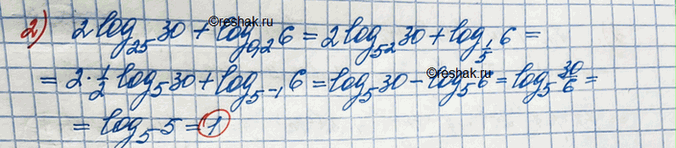 2) 2log₂₅30 + log₀,₂6 = 2log₅²30 + log_{1/5}6 =
= 2·1/2 log₅30 + log₅₋₁6 = log₅30 - log₅6 = log₅ 30/6 =
= log₅5 = 1
©reshak.ru
©reshak.ru